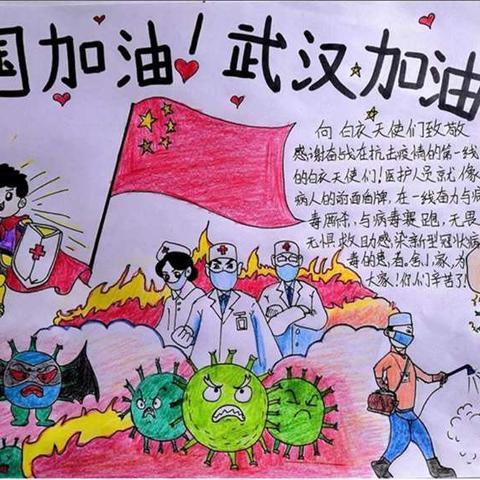 国加油！武汉加油
向白衣天使们致敬
感谢奋战在抗击疫情的第一线
的白衣天使们！医护人员就像
病人的前面盾牌，在一线奋力与病
毒厮杀，与病毒赛跑，无畏
无惧救助感染新型冠状病
毒的患者，舍小家，为
大家！你们辛苦了！